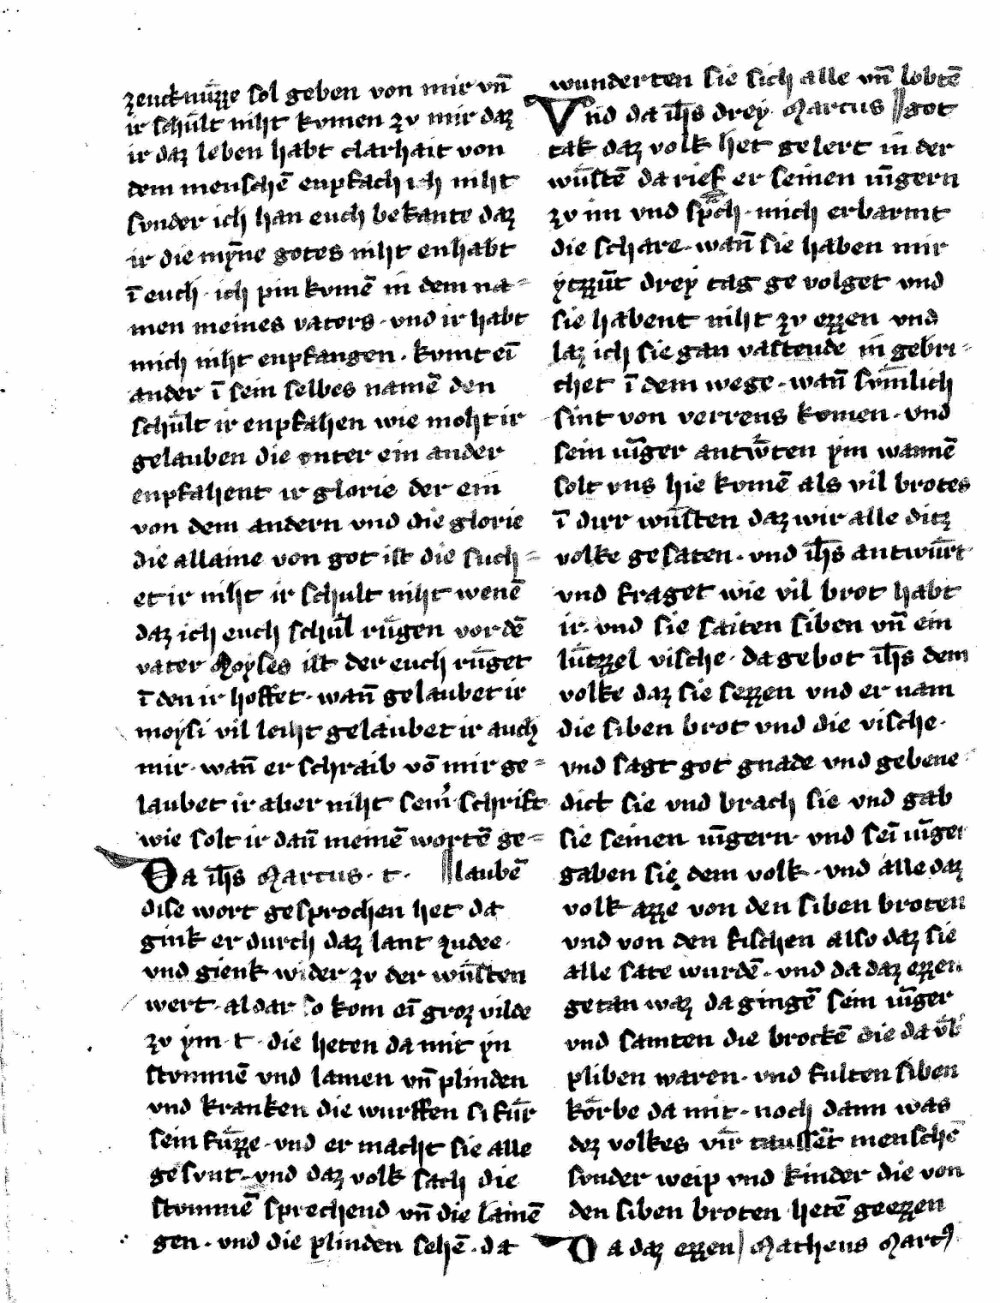 zeucknüzze sol geben von mir vn̄
ir schült niht komen zv mir daz
ir daz leben habt clarhait von
dem menschē enpfach ich niht
sunder ich han euch bekante daz
ir die mȳne gotes niht enhabt
ī euch · ich pin komē in dem na=
men meines vaters · vnd ir habt
mich niht enpfangen · kvmt eī
ander ī sein selbes namē den
schült ir enpfahen wie moht ir
gelauben die vnter ein ander
enpfahent ir glorie der ein
von dem andern vnd die glorie
die allaine von got ist die such=
et ir niht ir schult niht wenē
daz ich euch schül rügen vor dē
vater Moyses ist der euch rüget
ī den ir hoffet · wan̄ gelaubet ir
moysi vil leiht gelaubet ir auch
mir · wan̄ er schraib vō mir ge=
laubet ir aber niht sein̄ schrift
wie solt ir dan̄ meinē wortē ge=
Da ih̄s Marcus · t · laubē
dise wort gesprochen het da
gink er durch daz lant zudee ·
vnd gienk wider zv der wüsten
wert · aldar so kom eī groz vilde
zv ym · t · die heten da mit yn
stvmmē vnd lamen vn̄ plinden
vnd kranken die wurffen si für
sein füzze · vnd er macht sie alle
gesvnt · vnd daz volk sach die
stvmmē sprechend vn̄ die lamē
gen · vnd die plinden sehē · da
wunderten sie sich alle vn̄ lobtē
Vnd da ih̄s drey Marcus got
tak daz volk het gelert in der
wüstē da rief er seinen iūgern
zv im vnd sp̄ch · mich erbarmt
die schare · wan̄ sie haben mir
ytzzūt drey tag ge volget vnd
sie habent niht zv ezzen vnd
laz ich sie gan vastende in gebri=
chet ī dem wege · wan̄ svm̄lich
sint von verrens komen · vnd
sein iūger antw̄ten ym wannē
solt vns hie komē als vil brotes
ī dirr wüsten daz wir alle ditz
volke gesaten · vnd ih̄s antwürt
vnd fraget wie vil brot habt
ir · vnd sie saiten siben vn̄ ein
lützzel vische · da gebot ih̄s dem
volke daz sie sezzen vnd er nam
die siben brot vnd die vische ·
vnd sagt got gnade vnd gebene
dict sie vnd brach sie vnd gab
sie seinen iūgern · vnd seī iūger
gaben sie dem volk · vnd alle daz
volk azze von den siben broten
vnd von den fischen also daz sie
alle sate wurdē · vnd da daz ezzen
getan waz da gingē sein iūger
vnd samten die brockē die da v̄b
pliben waren · vnd fulten siben
körbe da mit · noch dann was
dez volkes vir tausset menschē
sunder weip vnd kinder die von
den siben broten hetē geezzen
Da daz ezzen Matheus Marc9